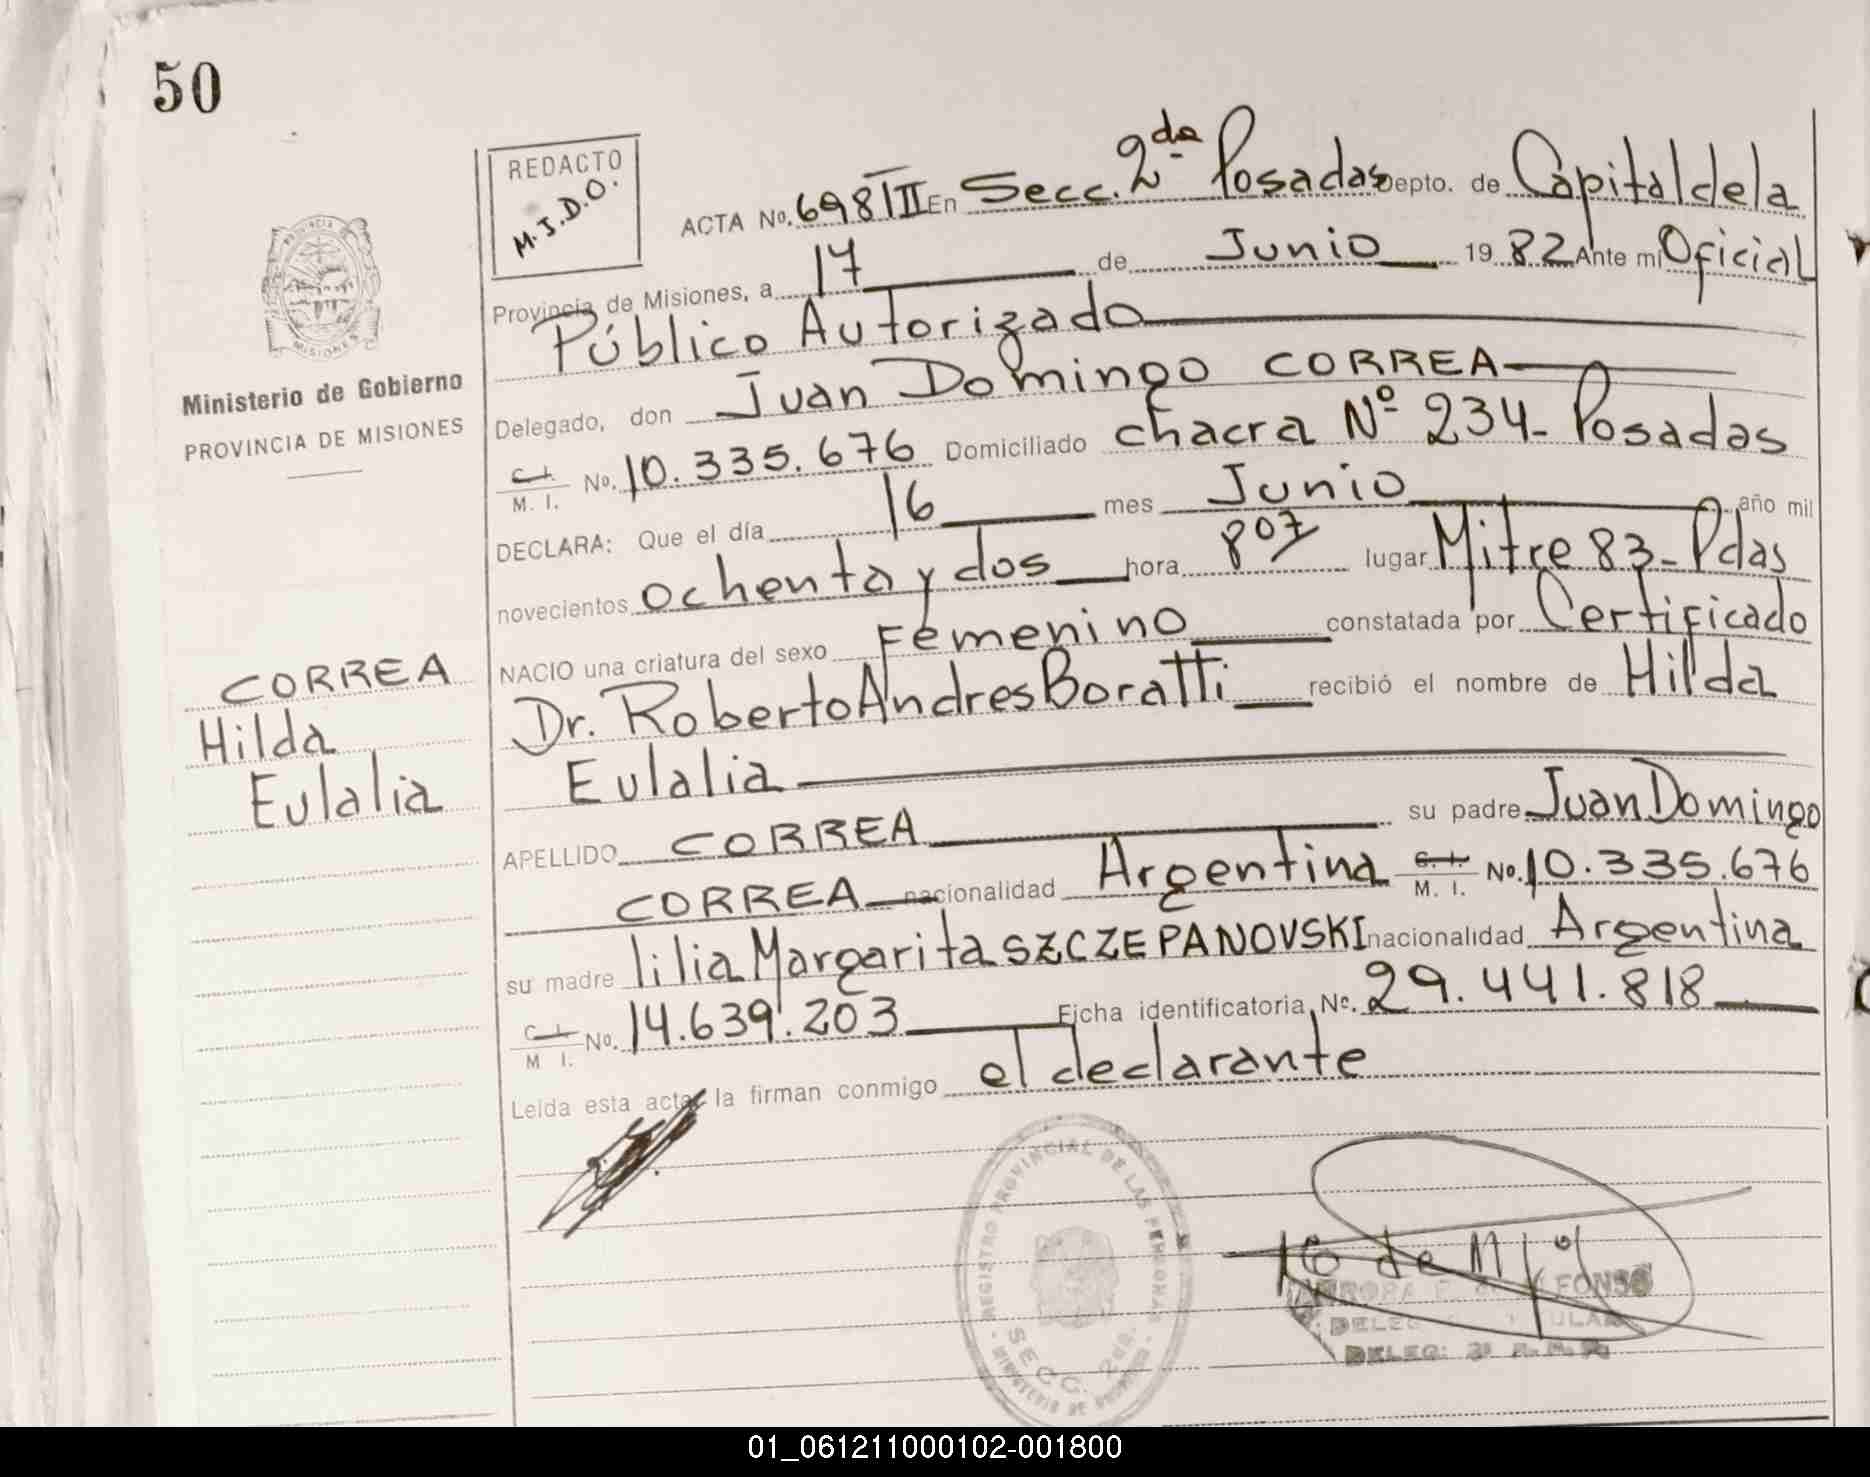 50
REDACTO
M.J.D.O.
ACTA No. 698 TII En Secc. 2da Posadas Depto. de Capital de la
Provincia de Misiones, a 17 de Junio 19 82 Ante mi Oficial
Público Autorizado
Delegado, don Juan Domingo CORREA
C. I. M. I. No. 10.335.676 Domiciliado chacra Nº 234- Posadas
DECLARA: Que el día 16 mes Junio año mil
novecientos ochenta y dos hora 807 lugar Mitre 83- Pdas
NACIO una criatura del sexo Femenino constatada por Certificado
Dr. Roberto Andres Boratti recibió el nombre de Hilda
Eulalia
APELLIDO CORREA su padre Juan Domingo
CORREA nacionalidad Argentina C. I. M. I. No. 10.335.676
su madre lilia Margarita SZCZEPANOVSKI nacionalidad Argentina
C. I. M I. No. 14.639.203 Ficha identificatoria, Nº. 29.441.818
Leida esta acta, la firman conmigo el declarante
PROVINCIA DE
MISIONES
Ministerio de Gobierno
PROVINCIA DE MISIONES
CORREA
Hilda
Eulalia
REGISTRO PROVINCIAL DE LAS PERSONAS
SECC. 2da.
MINISTERIO DE GOBIERNO
FONSO
DELEG: 2ª
01_061211000102-001800